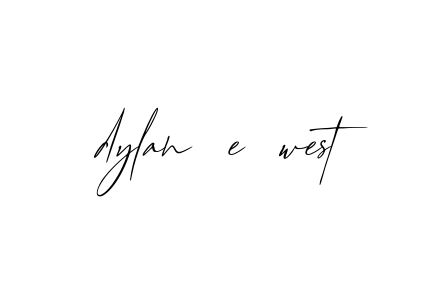 dylan e west